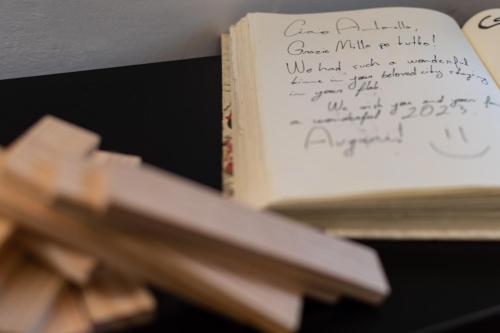 Ciao Antonella,
Grazie Mille po tutto!
We had such a wonderful
time in your beloved city staying
in your flat.
We wish you and your
a wonderful 2023
Auguri!